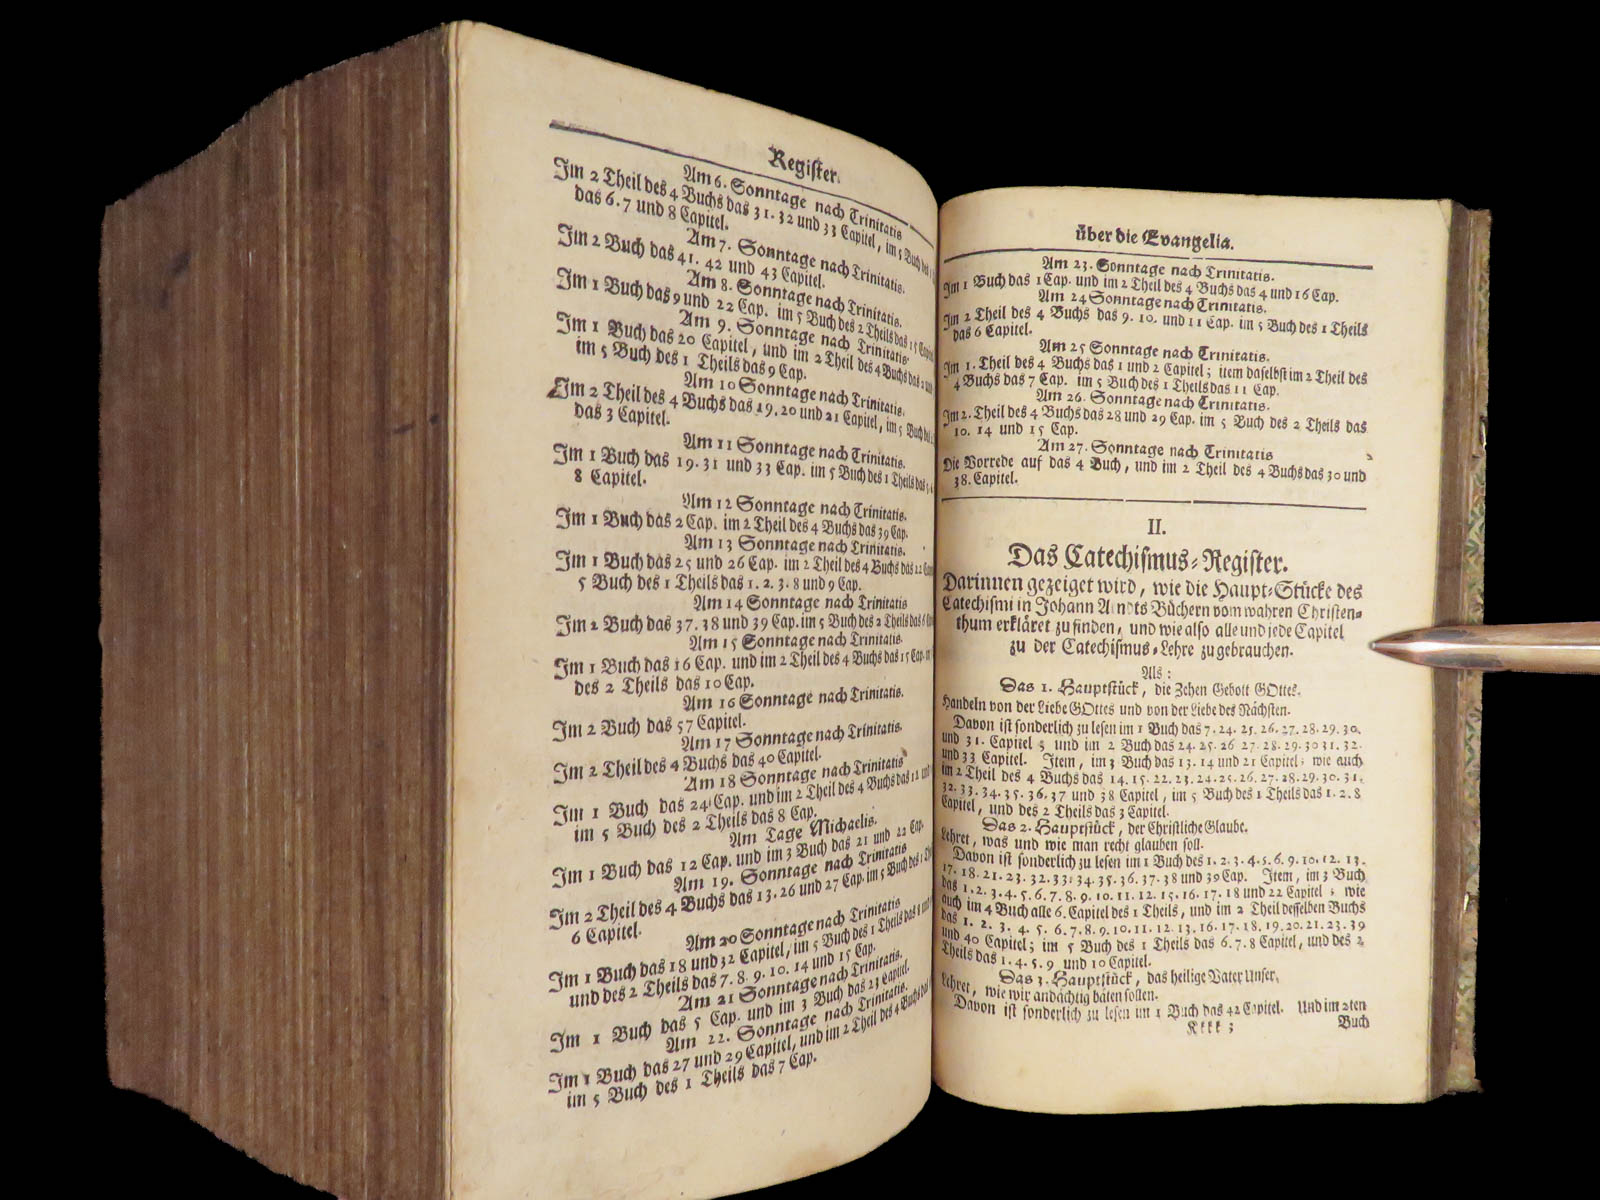 Register.
Am 6. Sonntage nach Trinitatis
Im 2 Theil des 4 Buchs das 31. 32 und 33 Capitel, im 5 Buch des
das 6. 7 und 8 Capitel.
Am 7. Sonntage nach Trinitatis.
Im 2 Buch das 41. 42 und 43 Capitel.
Am 8. Sonntage nach Trinitatis.
Im 1 Buch das 9 und 22 Cap. im 5 Buch des 2 Theils das 15 Capitel
Am 9. Sonntage nach Trinitatis.
Im 1 Buch das 20 Capitel, und im 2 Theil des 4 Buchs das 2 und
im 5 Buch des 1 Theils das 9 Cap.
Am 10 Sonntage nach Trinitatis.
Im 2 Theil des 4 Buchs das 19. 20 und 21 Capitel, im 5 Buch
das 3 Capitel.
Am 11 Sonntage nach Trinitatis.
Im 1 Buch das 19. 31 und 33 Cap. im 5 Buch des 1 Theils das
8 Capitel.
Am 12 Sonntage nach Trinitatis.
Im 1 Buch das 2 Cap. im 2 Theil des 4 Buchs das 39 Cap.
Am 13 Sonntage nach Trinitatis.
Im 1 Buch das 25 und 26 Cap. im 2 Theil des 4 Buchs das 22
5 Buch des 1 Theils das 1. 2. 3. 8 und 9 Cap.
Am 14 Sonntage nach Trinitatis
Im 2 Buch das 37. 38 und 39 Cap. im 5 Buch des 2 Theils das 6
Am 15 Sonntage nach Trinitatis.
Im 1 Buch das 16 Cap. und im 2 Theil des 4 Buchs das 15 Cap.
des 2 Theils das 10 Cap.
Am 16 Sonntage nach Trinitatis.
Im 2 Buch das 57 Capitel.
Am 17 Sonntage nach Trinitatis.
Im 2 Theil des 4 Buchs das 40 Capitel.
Am 18 Sonntage nach Trinitatis
Im 1 Buch das 24 Cap. und im 2 Theil des 4 Buchs das 12 und
im 5 Buch des 2 Theils das 8 Cap.
Am Tage Michaelis.
Im 1 Buch das 12 Cap. und im 3 Buch das 21 und 22 Cap.
Am 19. Sonntage nach Trinitatis
Im 2 Theil des 4 Buchs das 13. 26 und 27 Cap. im 5 Buch des 1
6 Capitel.
Am 20 Sonntage nach Trinitatis
Im 1 Buch das 18 und 32 Capitel, im 5 Buch des 1 Theils das 8 und
und des 2 Theils das 7. 8. 9. 10. 14 und 15 Cap.
Am 21 Sonntage nach Trinitatis.
Im 1 Buch das 5 Cap. und im 3 Buch das 23 Capitel.
Am 22. Sonntage nach Trinitatis.
Im 1 Buch das 27 und 29 Capitel, und im 2 Theil des 4 Buchs das
im 5 Buch des 1 Theils das 7 Cap.
über die Evangelia.
Am 23. Sonntage nach Trinitatis.
Im 1 Buch das 1 Cap. und im 2 Theil des 4 Buchs das 4 und 16 Cap.
Am 24 Sonntage nach Trinitatis.
Im 2 Theil des 4 Buchs das 9. 10. und 11 Cap. im 5 Buch des 1 Theils
das 6 Capitel.
Am 25 Sonntage nach Trinitatis.
Im 1. Theil des 4 Buchs das 1 und 2 Capitel; item daselbst im 2 Theil des
4 Buchs das 7 Cap. im 5 Buch des 1 Theils das 11 Cap.
Am 26. Sonntage nach Trinitatis.
Im 2. Theil des 4 Buchs das 28 und 29 Cap. im 5 Buch des 2 Theils das
10. 14 und 15 Cap.
Am 27. Sonntage nach Trinitatis
Die Vorrede auf das 4 Buch, und im 2 Theil des 4 Buchs das 30 und
38. Capitel.
II.
Das Catechismus-Register.
Darinnen gezeiget wird, wie die Haupt-Stücke des
Catechismi in Johann Arndts Büchern vom wahren Christen-
thum erkläret zu finden, und wie also alle und jede Capitel
zu der Catechismus-Lehre zu gebrauchen.
Als:
Das 1. Hauptstück, die Zehen Gebott GOttes.
Handeln von der Liebe GOttes und von der Liebe des Nächsten.
Davon ist sonderlich zu lesen im 1 Buch das 7. 24. 25. 26. 27. 28. 29. 30.
und 31. Capitel; und im 2 Buch das 24. 25. 26 27. 28. 29. 30 31. 32.
und 33 Capitel. Item, im 3 Buch das 13. 14 und 21 Capitel; wie auch
im 2 Theil des 4 Buchs das 14. 15. 22. 23. 24. 25. 26. 27. 28. 29. 30. 31.
32. 33. 34. 35. 36. 37 und 38 Capitel, im 5 Buch des 1 Theils das 1. 2. 8
Capitel, und des 2 Theils das 3 Capitel.
Das 2. Hauptstück, der Christliche Glaube.
Lehret, was und wie man recht glauben soll.
Davon ist sonderlich zu lesen im 1 Buch des 1. 2. 3. 4. 5. 6. 9. 10. 12. 13.
17. 18. 21. 23. 32. 33. 34. 35. 36. 37. 38 und 39 Cap. Item, im 3 Buch
das 1. 2. 3. 4. 5. 6. 7. 8. 9. 10. 11. 12. 15. 16. 17. 18 und 22 Capitel; wie
auch im 4 Buch alle 6. Capitel des 1 Theils, und im 2 Theil desselben Buchs
das 1. 2. 3. 4. 5. 6. 7. 8. 9. 10. 11. 12. 13. 16. 17. 18. 19. 20. 21. 23. 39
und 40 Capitel; im 5 Buch des 1 Theils das 6. 7. 8 Capitel, und des 2
Theils das 1. 4. 5. 9 und 10 Capitel.
Das 3. Hauptstück, das heilige Vater Unser,
Lehret, wie wir andächtig bäten sollen.
Davon ist sonderlich zu lesen im 1 Buch das 42 Capitel. Und im 2ten
Kkkk 3 Buch